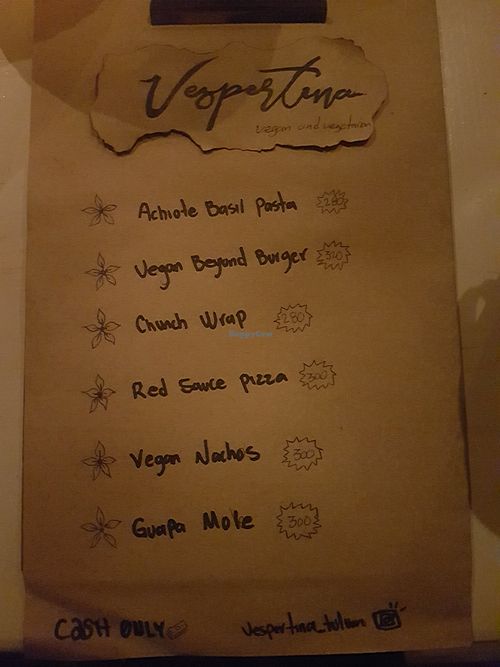 Vespertina
vegan and vegetarian
Achiote Basil Pasta 280
Vegan Beyond Burger 320
Chunch Wrap 280
Red Sauce Pizza 300
Vegan Nachos 300
Guapa Mole 300
CASH ONLY
vespertina_tulum